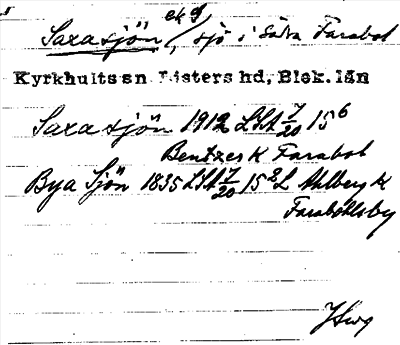 Saxasjön ek 9/, sjö i Södra Farabol
Kyrkhults sn Listers hd, Blek. län
Saxasjön 1912 LSA 7/20 15⁶
Bentzes K Farabol
Bya Sjön 1835 LSA 7/20 15² L Ahlberg K
Faraböhlsby